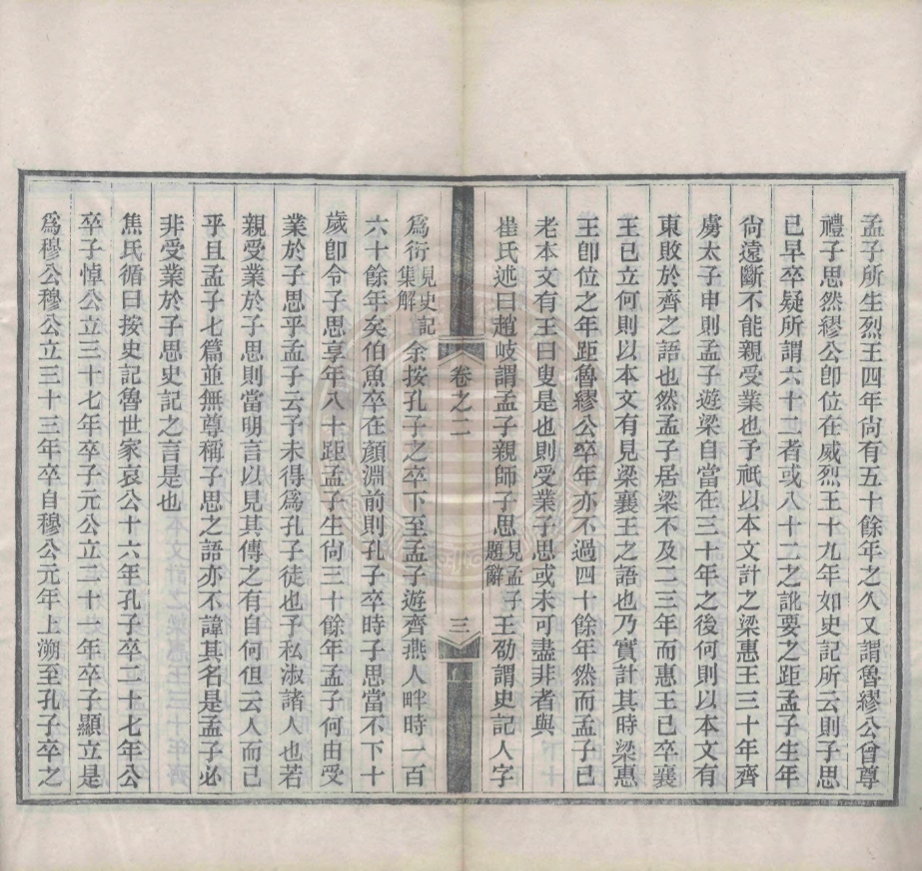 孟子所生烈王四年尚有五十餘年之久又謂魯繆公曾尊
禮子思然繆公卽位在威烈王十九年如史記所云則子思
已早卒疑所謂六十二者或八十二之訛要之距孟子生年
尙遠斷不能親受業也予祇以本文計之梁惠王三十年齊
虜太子申則孟子遊梁自當在三十年之後何則以本文有
東敗於齊之語也然孟子居梁不及二三年而惠王已卒襄
王已立何則以本文有見梁襄王之語也乃實計其時梁惠
王卽位之年距魯繆公卒年亦不過四十餘年然而孟子已
老本文有王曰叟是也則受業子思或未可盡非者與
崔氏述曰趙岐謂孟子親師子思見孟子題辭王劭謂史記人字
卷之二
三
爲衍見史記集解余按孔子之卒下至孟子遊齊燕人畔時一百
六十餘年矣伯魚卒在顏淵前則孔子卒時子思當不下十
歲卽令子思享年八十距孟子生尙三十餘年孟子何由受
業於子思乎孟子云予未得爲孔子徒也予私淑諸人也若
親受業於子思則當明言以見其傳之有自何但云人而已
乎且孟子七篇並無尊稱子思之語亦不諱其名是孟子必
非受業於子思史記之言是也
焦氏循曰按史記魯世家哀公十六年孔子卒二十七年公
卒子悼公立三十七年卒子元公立二十一年卒子顯立是
爲穆公穆公立三十三年卒自穆公元年上溯至孔子卒之